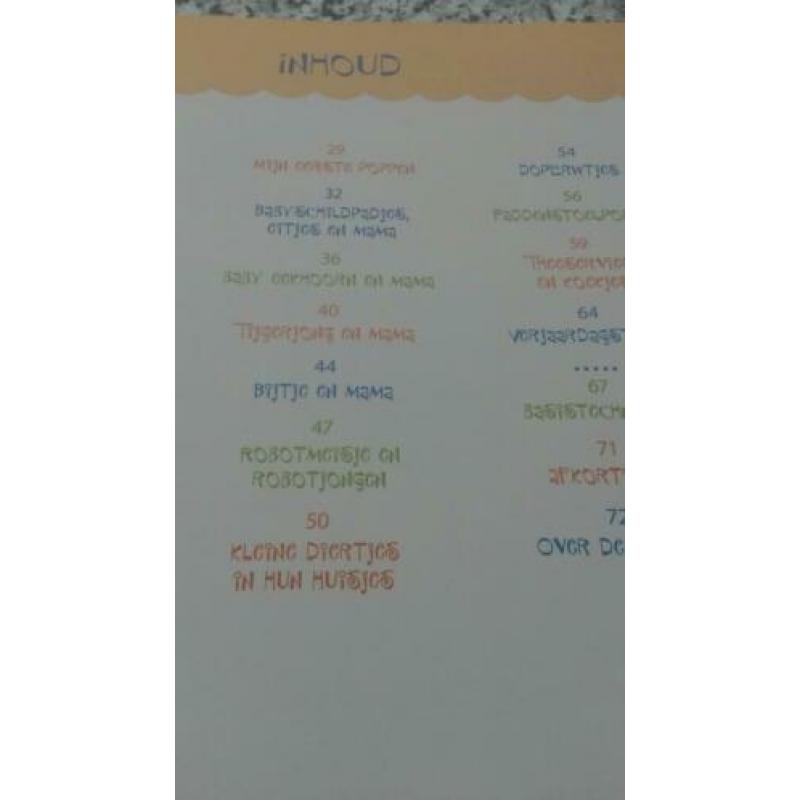 INHOUD
29
MIJN EERSTE POPPEN
32
BABYSCHILDPADJES,
EITJES EN MAMA
36
BABY EEKHOORN EN MAMA
40
TIJGERJONG EN MAMA
44
BIJTJE EN MAMA
47
ROBOTMEISJE EN
ROBOTJONGEN
50
KLEINE DIERTJES
IN HUN HUISJES
54
DOPERWTJES
56
PADDENSTOELPO
59
THEESERVIE
EN KOEKJE
64
VERJAARDAGST
.....
67
BASISTECH
71
AFKORT
72
OVER DE